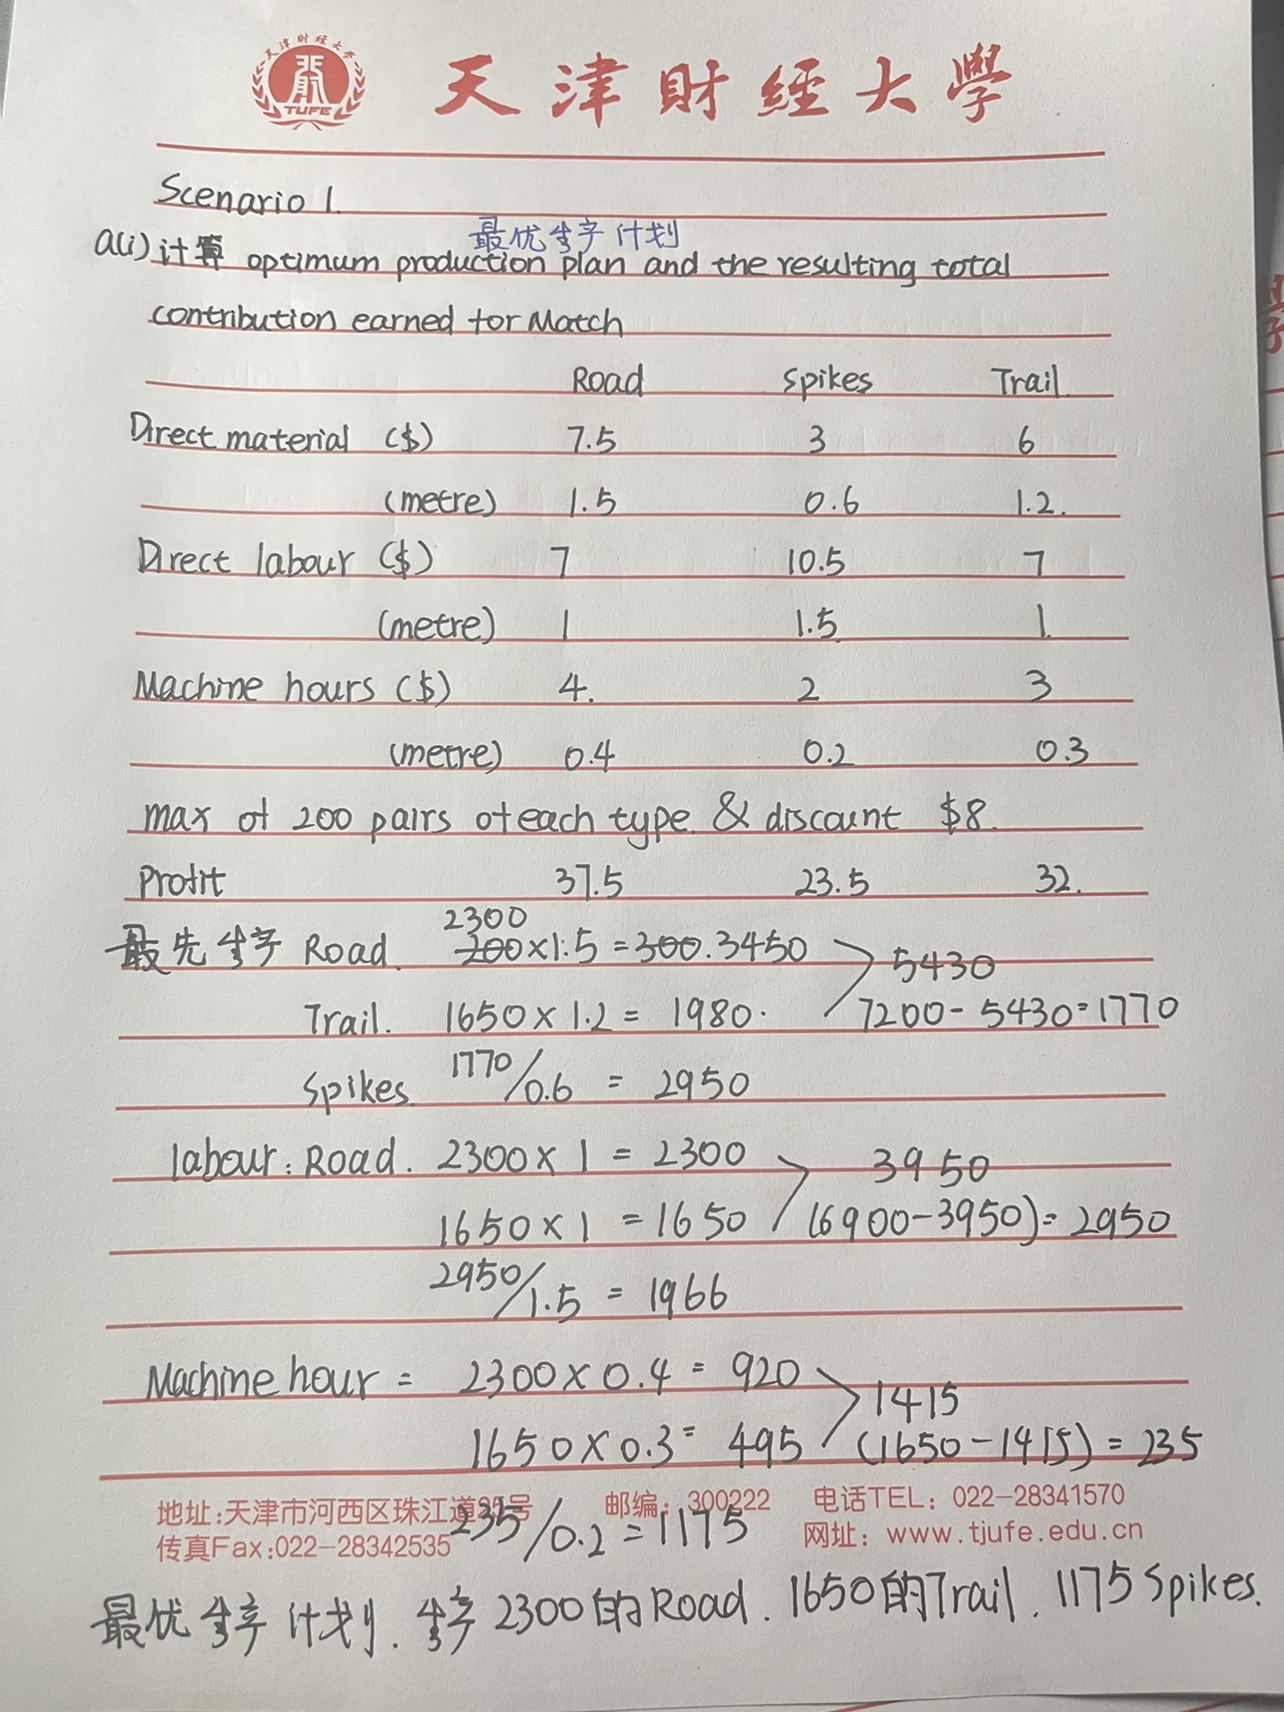 天津财经大学
TUFE
天津財經大學
Scenario 1.
最优生产计划
a(i) 计算 optimum production plan and the resulting total
contribution earned for Match
Road Spikes Trail.
Direct material ($) 7.5 3 6
(metre) 1.5 0.6 1.2.
Direct labour ($) 7 10.5 7
(metre) 1 1.5 1.
Machine hours ($) 4. 2 3
(metre) 0.4 0.2 0.3
max of 200 pairs of each type & discount $8.
Profit 37.5 23.5 32.
2300
最先生产 Road. 200×1.5 = 300. 3450 5430
Trail. 1650 × 1.2 = 1980. 7200 - 5430 = 1770
Spikes. 1770/0.6 = 2950
labour: Road. 2300 × 1 = 2300 3950
1650 × 1 = 1650 (6900-3950) = 2950
2950/1.5 = 1966
Machine hour = 2300 × 0.4 = 920 1415
1650 × 0.3 = 495 (1650-1415) = 235
地址:天津市河西区珠江道25号 邮编: 300222 电话TEL: 022-28341570
235/0.2 = 1175
传真Fax:022-28342535 网址: www.tjufe.edu.cn
最优生产计划. 生产2300的Road. 1650的Trail. 1175 Spikes.